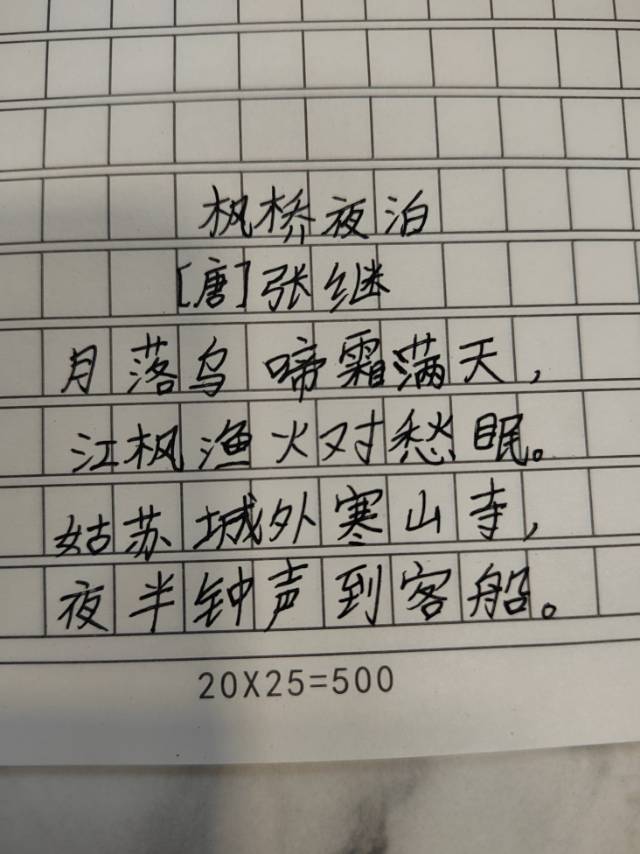 枫桥夜泊
[唐]张继
月落乌啼霜满天,
江枫渔火对愁眠。
姑苏城外寒山寺,
夜半钟声到客船。
20X25=500